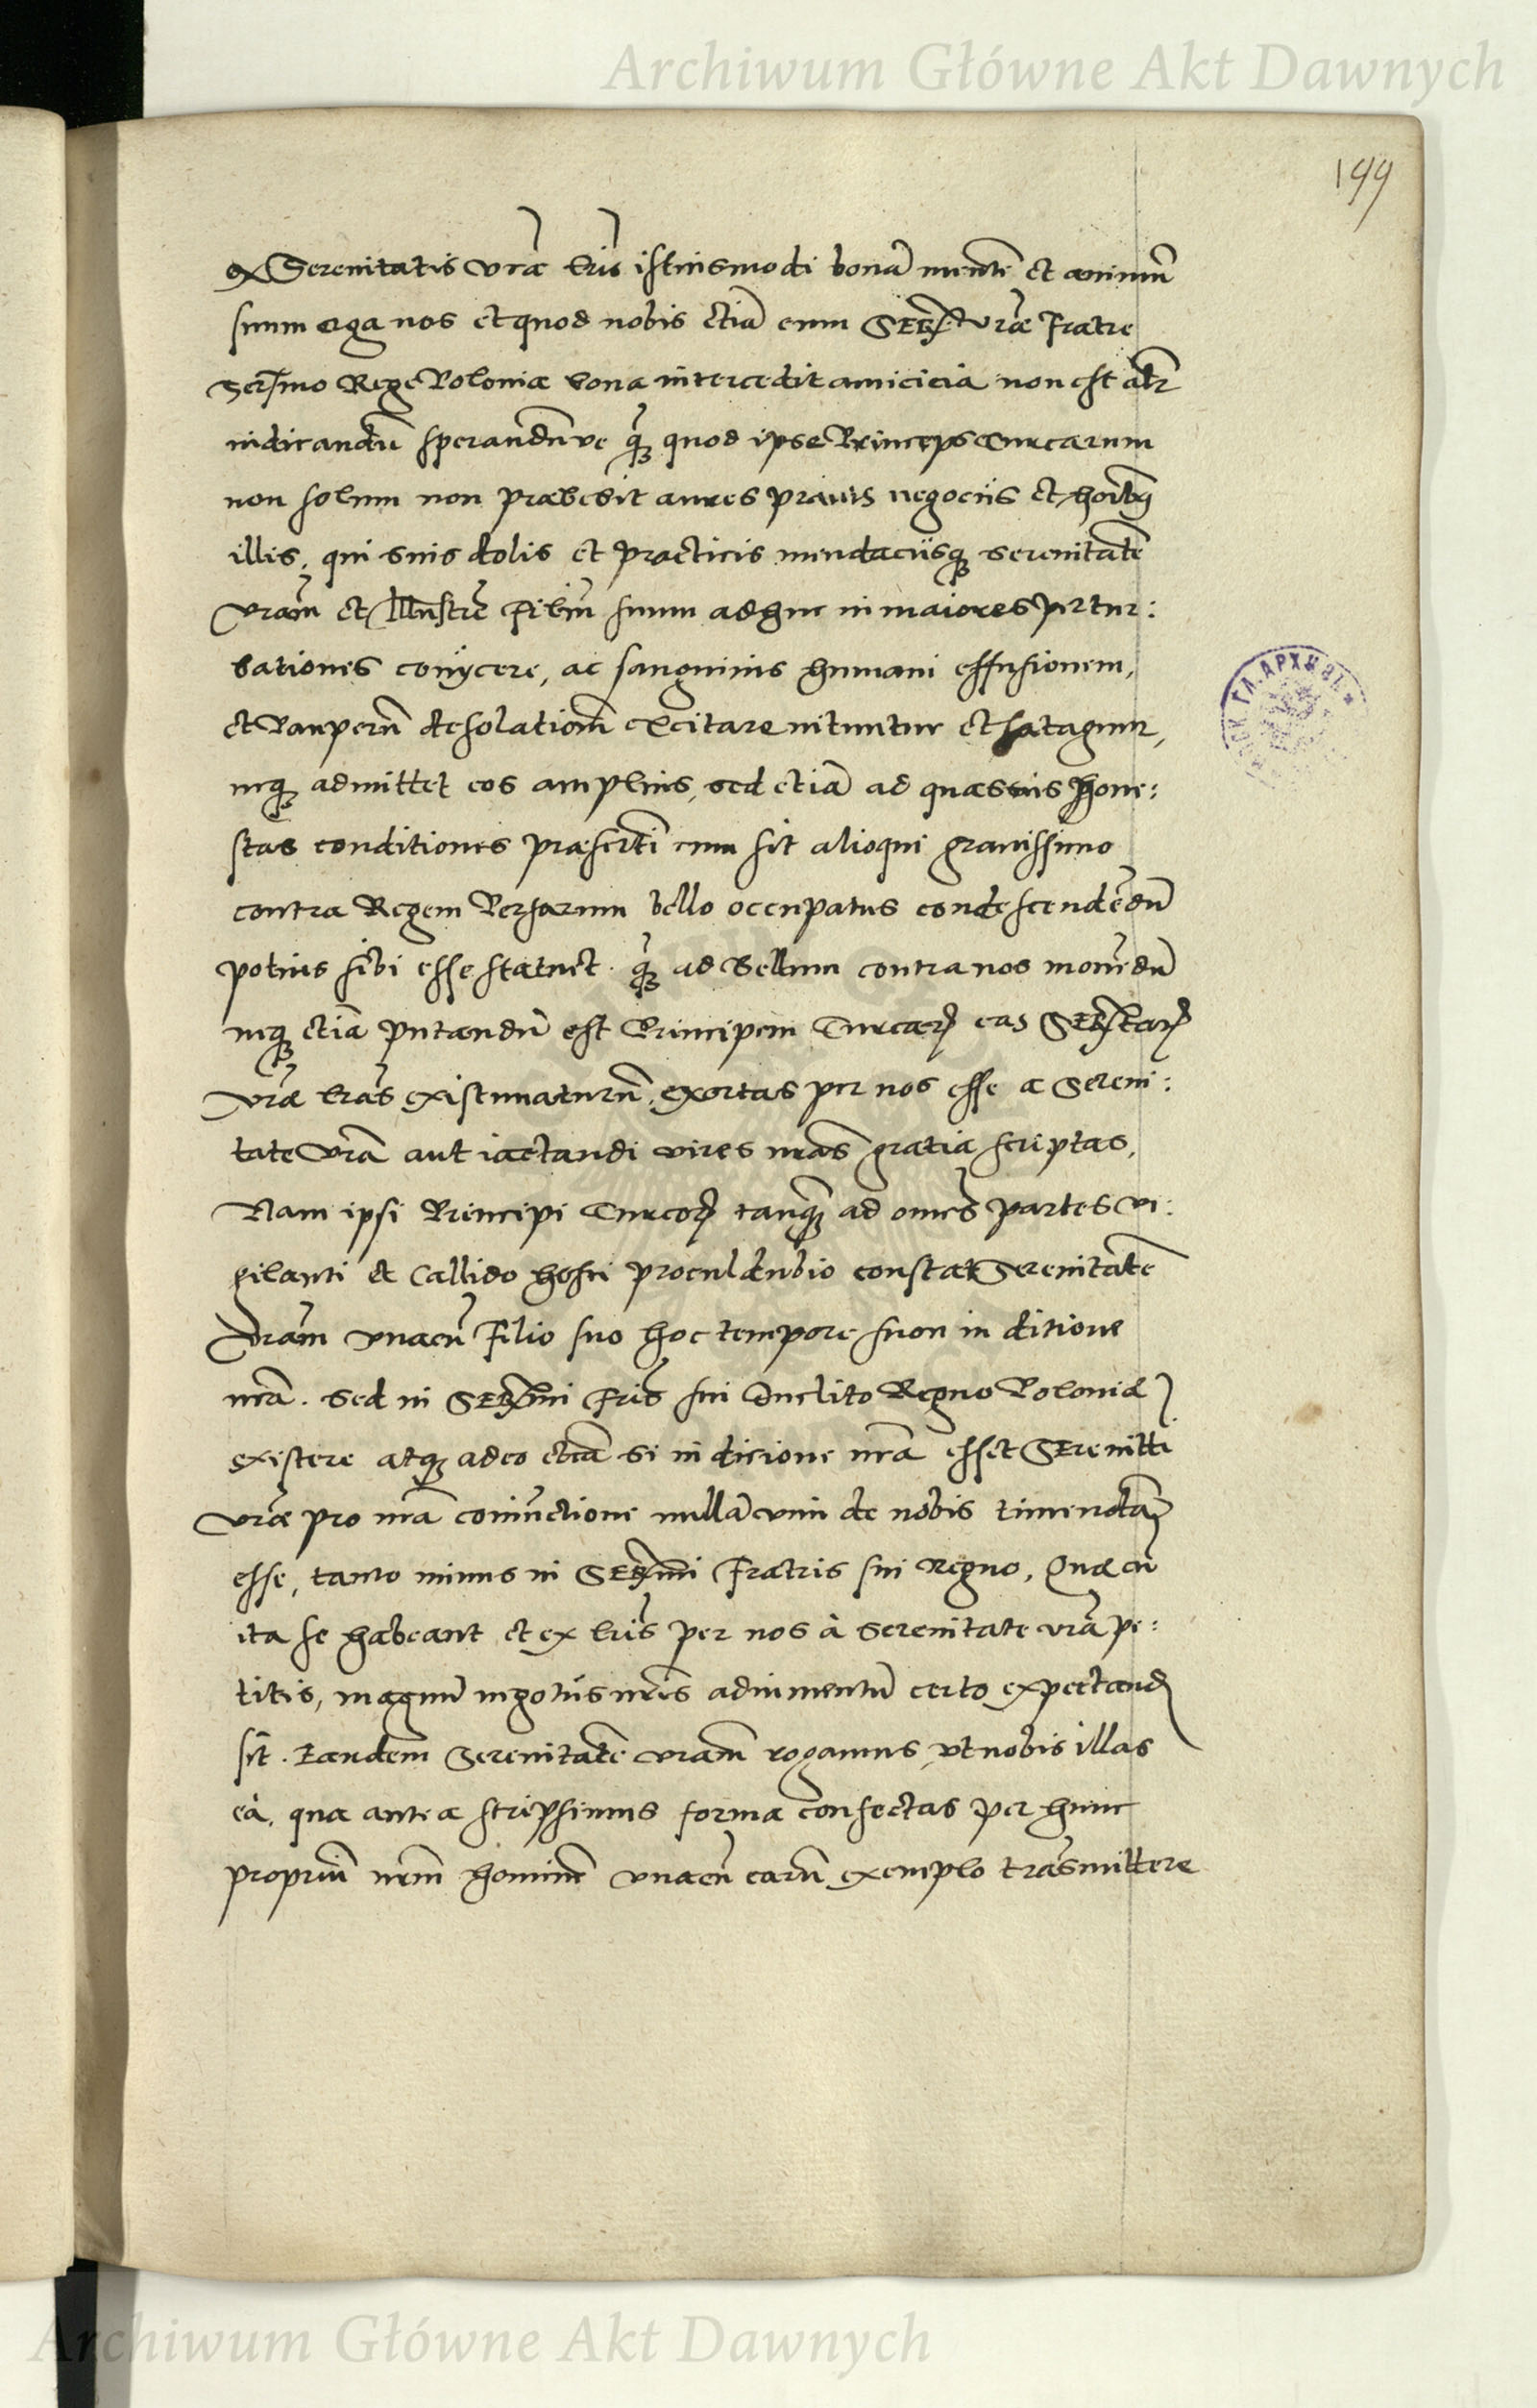 Archiwum Główne Akt Dawnych
199
ex Serenitatis vrae lris istiusmodi bonā mentē et animū
suum erga nos et quod nobis etiā cum Serᵗⁱˢ vrae Fratre
Sermo Rege Poloniae bona intercedit amicicia non est alr
iudicandū sperandūve q̃ꝫ quod ipse Princeps Turcarum
non solum non praebebit aures prauis negociis et hoibꝫ
illis, qui suis dolis et practicis mendaciisqꝫ serenitatē
vram et Illustrē Filiū suum adhuc in maiores pertur:
bationes conijcere, ac sanguinis humani effusionem,
et Pauperū desolationē excitare nituntur et satagunt,
neqꝫ admittet eos amplius, sed etiā ad quasuis hone:
stas conditiones praesertī cum sit alioqui grauissimo
contra Regem Persarum bello occupatus condescendēdū
potius sibi esse statuet. q̃ꝫ ad Bellum contra nos mouēdū
neqꝫ etiā putandū est Principem Turcarꝫ eas Serᵗᵃʳꝫ
vrae lras existimaturū, extortas per nos esse a Sereni:
tate vrā aut iactandi vires nras gratia scriptas,
Nam ipsi Principi Turcorꝫ tanq̃ꝫ ad omēs partes vi:
gilanti et Callido hosti proculdubio constat Serenitatē
Vram vnacū Filio suo hoc tempore non in ditione
nrā. sed in Sermi Fris sui Inclito Regno Poloniae
existere atqꝫ adeo etiā si in dicione nrā esset Serenitti
vrae pro nrā coniūctione nullā vim de nobis timendā
esse, tanto minus in Sermi Fratris sui regno, Quae cū
ita se habeant et ex lris per nos à Serenitate vrā pe:
titis, magnū negotiis nris adiumentū certo expectand
sit. tandem Serenitatē vram rogamus, vt nobis illas
eà, qua antea scripsimus forma confectas per hunc
propriū nrm hominē vnacū earū exemplo trāsmittere
ГЛ. АРХИВЪ
Archiwum Główne Akt Dawnych